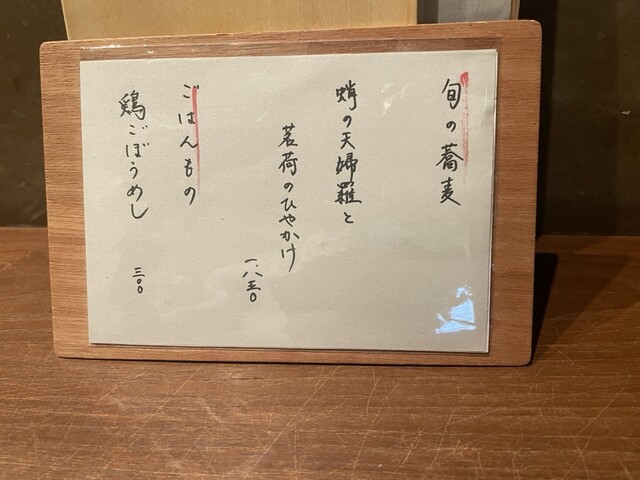 旬の蕎麦
蛸の天婦羅と
茗荷のひやかけ
一、八五〇
ごはんもの
鶏ごぼうめし
三〇〇